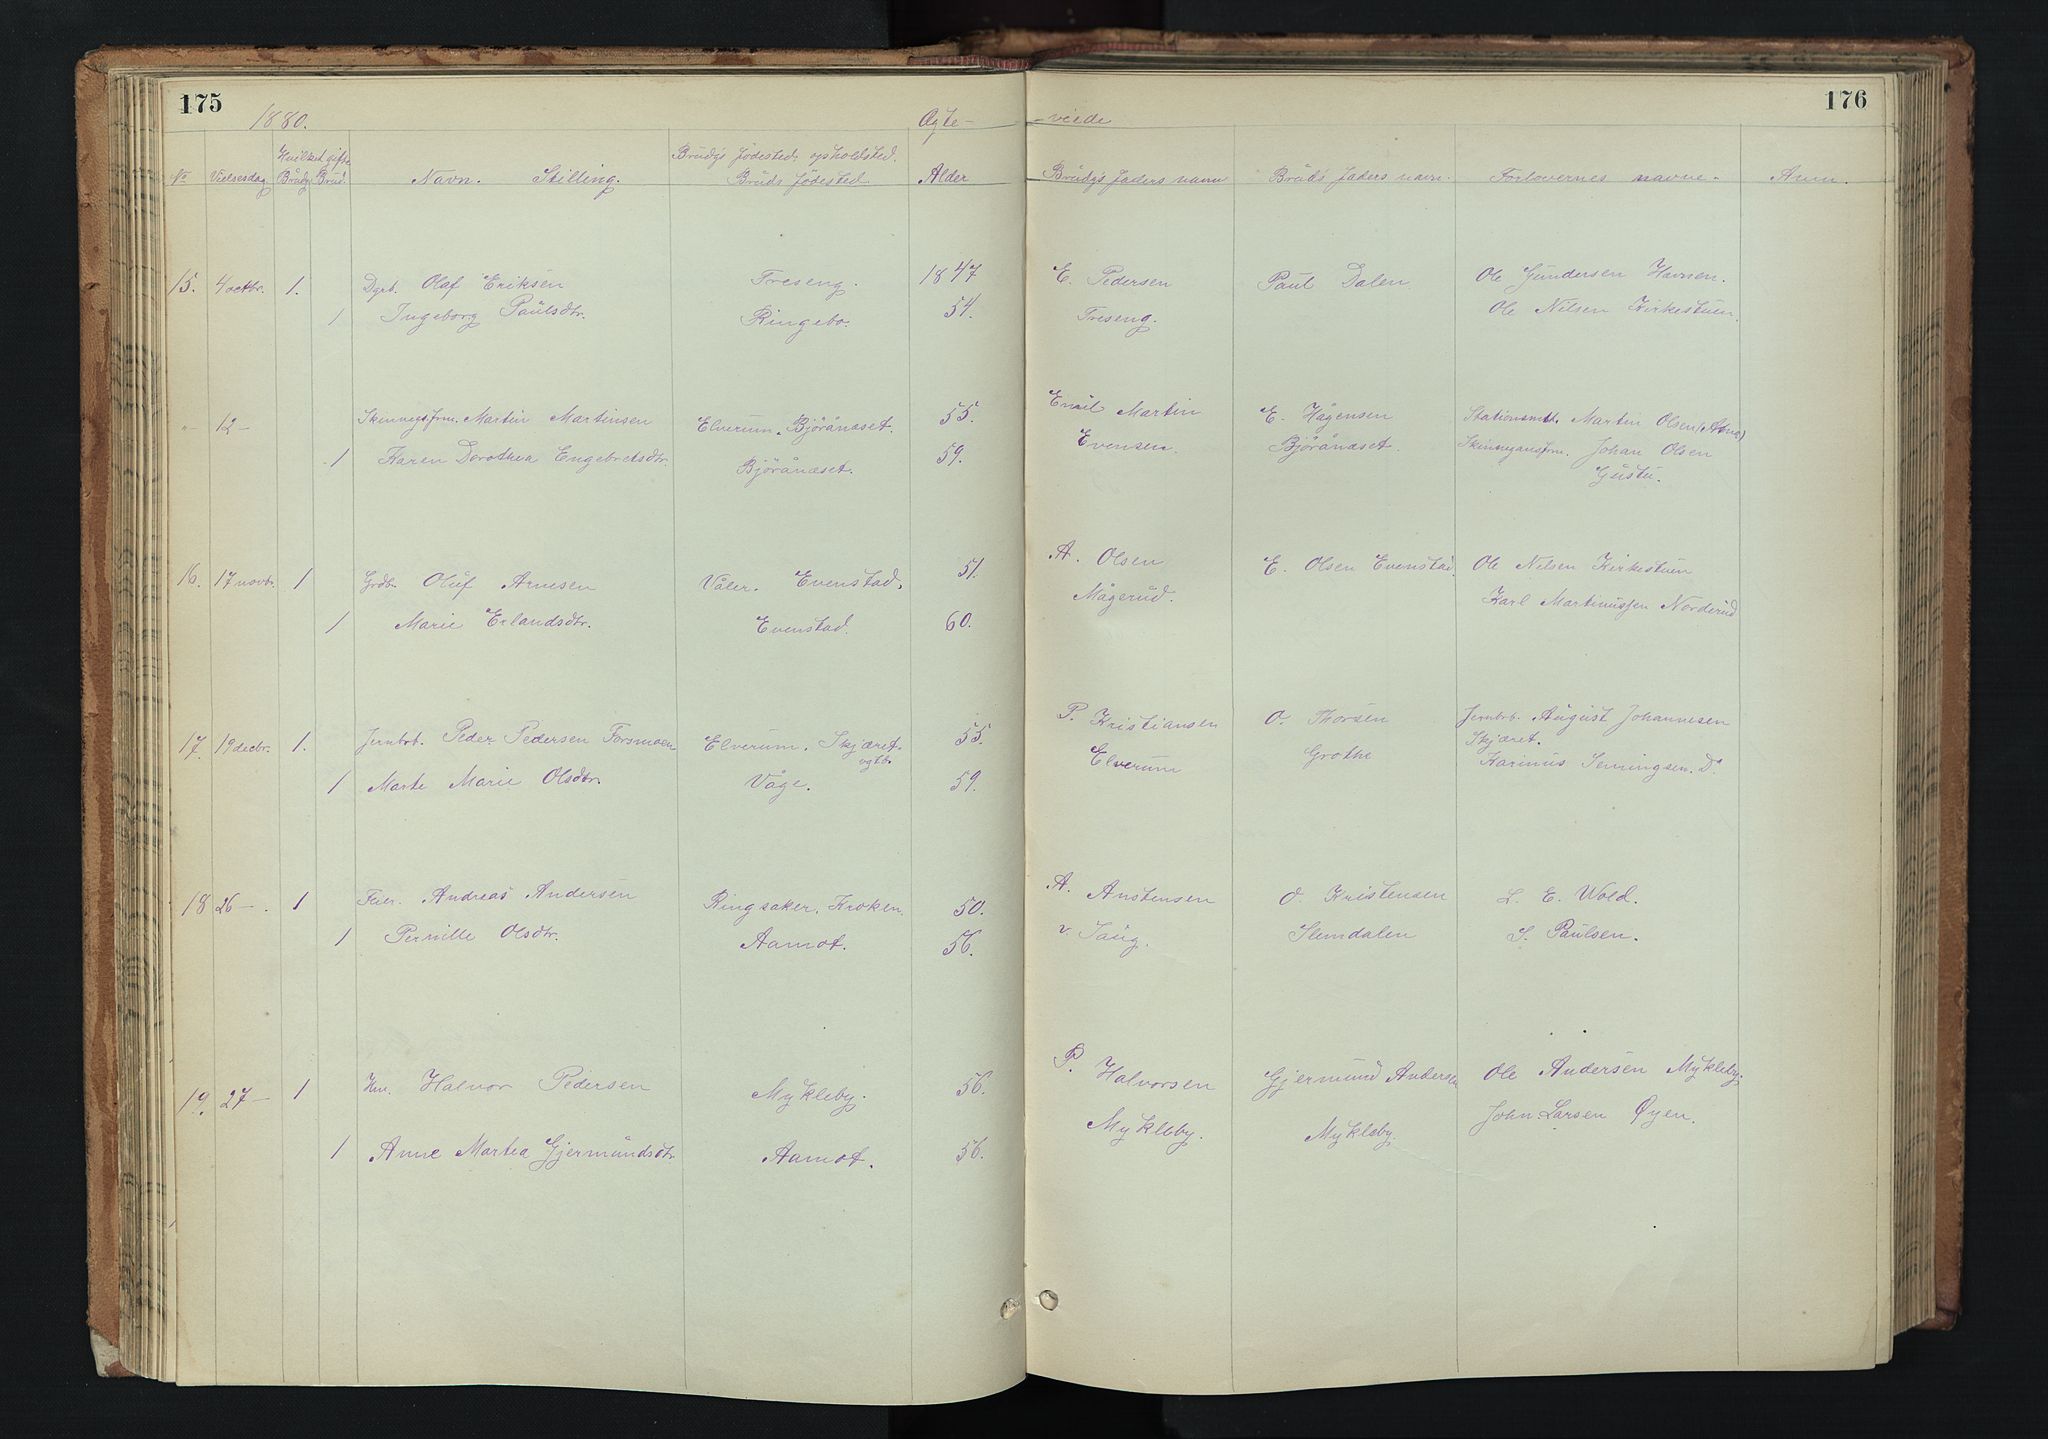 175
176
1880.
Ægte- -viede
Hvilket gifte
Brudg. Brud.
No
Vielsesdag
Navn. Stilling.
Brudg's fødested. opholdsted.
Bruds fødested
Alder
Brudg's faders navn
Brud's faders navn.
Forlovernes navne.
Anm.
15. 4 octbr. 1. Dgrb. Olaf Eriksen Treseng. 1847 E. Pedersen Paul Dalen Ole Gundersen Havnen.
1 Ingeborg Paulsdtr. Ringebo. 54. Treseng. Ole Nilsen Kirkestuen.
" 12 - Martin Martinsen Elverum. Björänæset. 55. Emil Martin E. Hågensen Stationsmtr. Martin Olsen (Atna)
1 Karen Dorothea Engebretsdtr. Björänæset. 59. Evensen. Björänæset. Johan Olsen
16. 17 novbr. 1 Grdb. Oluf Arnesen Våler. Evenstad. 51. A. Olsen E. Olsen Evenstad. Ole Nilsen Kirkestuen
1 Marie Erlandsdtr. Evenstad. 60. Mågerud. Karl Martinussen Norderud
17. 19 decbr. 1. Jernbrb. Peder Pedersen Forsmoen Elverum. Skjæret. 55. P. Kristiansen O. Thorsen Jernbrb. August Johannesen
vgtb.
Skjæret.
1 Marte Marie Olsdtr. Våge. 59. Elverum Grothe Karinus Jemingsen. Do.
18 26 - 1 Andreas Andersen Ringsaker. Kroken. 50. A. Anstensen O. Kristensen L. E. Wold.
1 Pernille Olsdtr. Aamot. 56. Slemdalen S. Paulsen.
19. 27 - 1 Halvor Pedersen Mykleby. 56. P. Halvorsen Gjermund Andersen Ole Andersen Mykleby.
1 Anne Martea Gjermundsdtr. Aamot. 56. Mykleby. Mykleby. John Larsen Øyen.